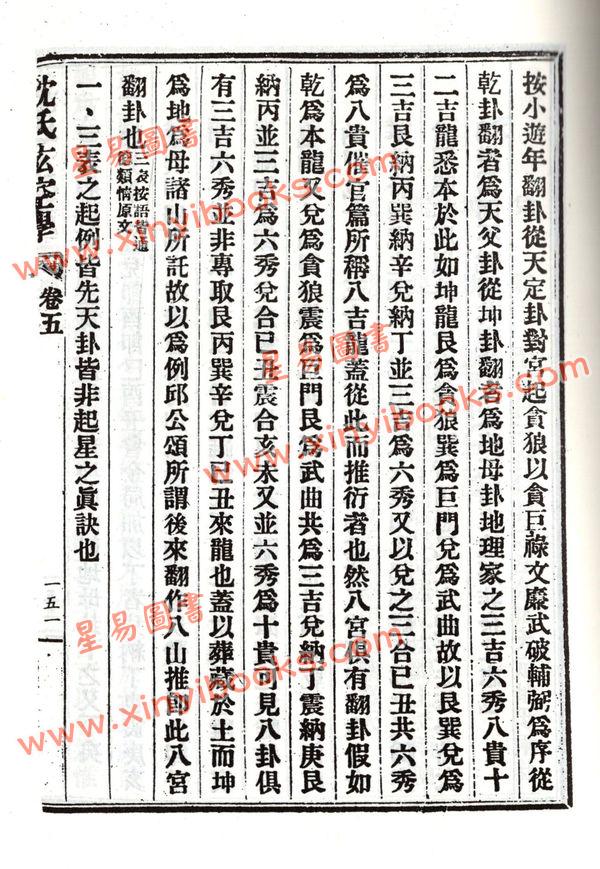 按小遊年翻卦從天定卦對宮起貪狼以貪巨祿文廉武破輔弼爲序從
乾卦翻者爲天父卦從坤卦翻者爲地母卦地理家之三吉六秀八貴十
二吉龍悉本於此如坤龍艮爲貪狼巽爲巨門兌爲武曲故以艮巽兌爲
三吉艮納丙巽納辛兌納丁並三吉爲六秀又以兌之三合巳丑共六秀
爲八貴催官篇所稱八吉龍蓋從此而推衍者也然八宮俱有翻卦假如
乾爲本龍又兌爲貪狼震爲巨門艮爲武曲共爲三吉兌納丁震納庚艮
納丙並三吉爲六秀兌合巳丑震合亥未又並六秀爲十貴可見八卦俱
有三吉六秀並非專取艮丙巽辛兌丁巳丑來龍也蓋以葬藏於土而坤
爲地爲母諸山所託故以爲例邱公頌所謂後來翻作八山推卽此八宮
翻卦也三表按語皆通德類情原文
一、三表之起例皆先天卦皆非起星之眞訣也
沈氏玄空學
卷五
一五一
星易圖書
www.xinyibooks.com
星易圖書
www.xinyibooks.com
星易圖書
www.xinyibooks.com